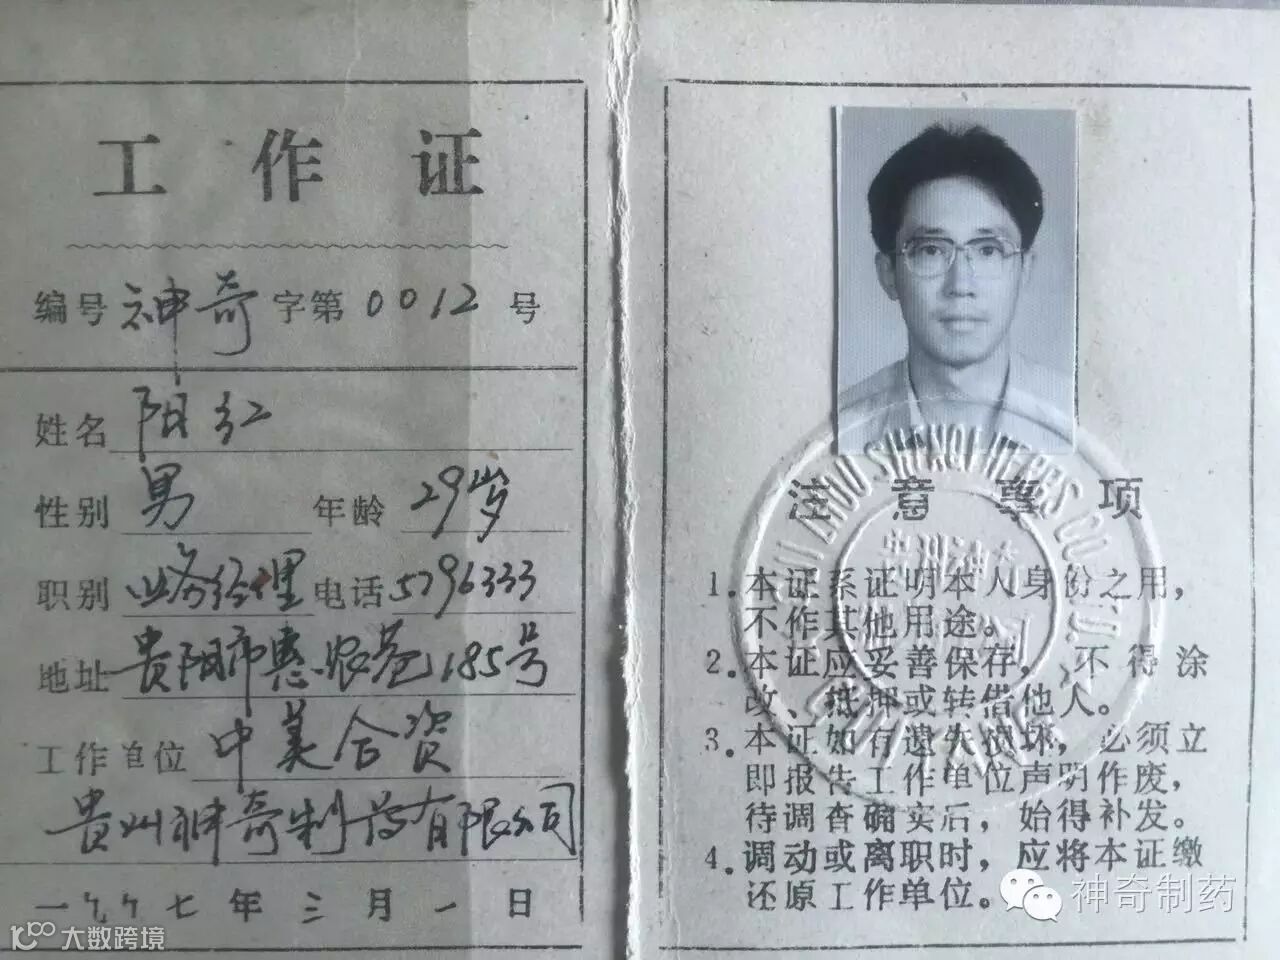 工作证
编号 神奇 字第 0012 号
姓名 阳红
性别 男 年龄 29岁
职别 业务经理 电话 5796333
地址 贵阳市惠农巷185号
工作单位 中美合资
贵州神奇制药有限公司
一九九七年三月一日
注意事项
1.本证系证明本人身份之用,
不作其他用途。
2.本证应妥善保存, 不得涂
改、抵押或转借他人。
3.本证如有遗失损坏, 必须立
即报告工作单位声明作废,
待调查确实后, 始得补发。
4.调动或离职时, 应将本证缴
还原工作单位。
SHENQI HERBS CO. LTD.
神奇制药
大数跨境